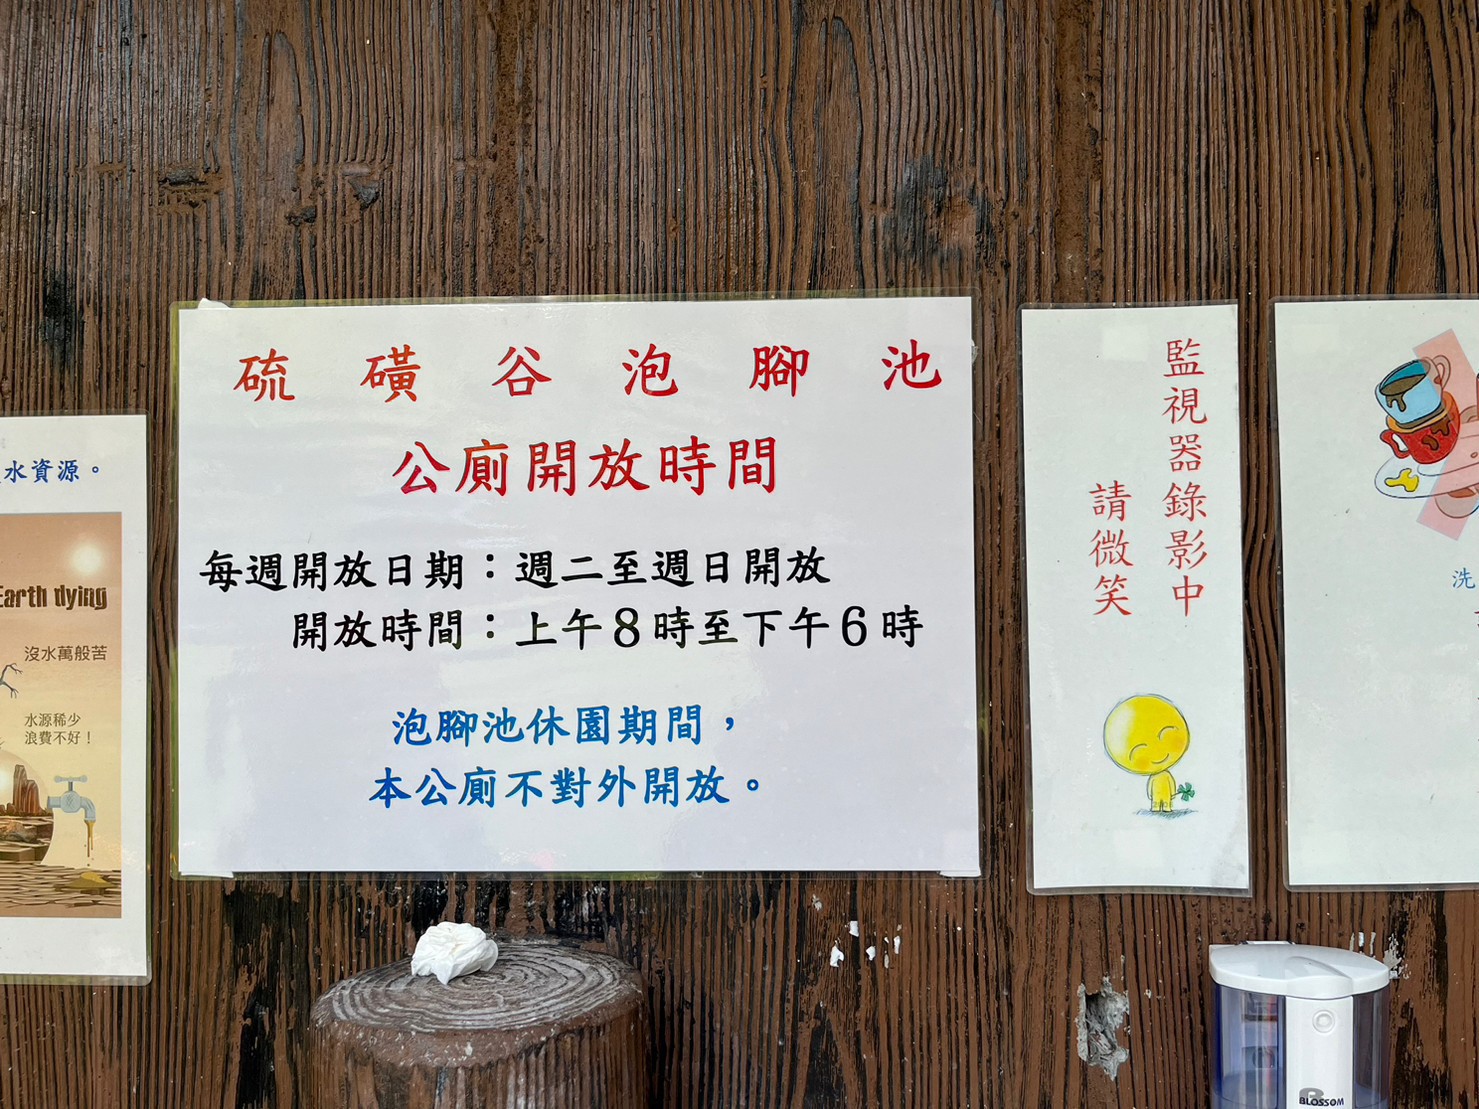 水資源。
Earth dying
沒水萬般苦
水源稀少
浪費不好！
硫磺谷泡腳池
公廁開放時間
每週開放日期：週二至週日開放
開放時間：上午8時至下午6時
泡腳池休園期間，
本公廁不對外開放。
監視器錄影中
請微笑
洗
BLOSSOM